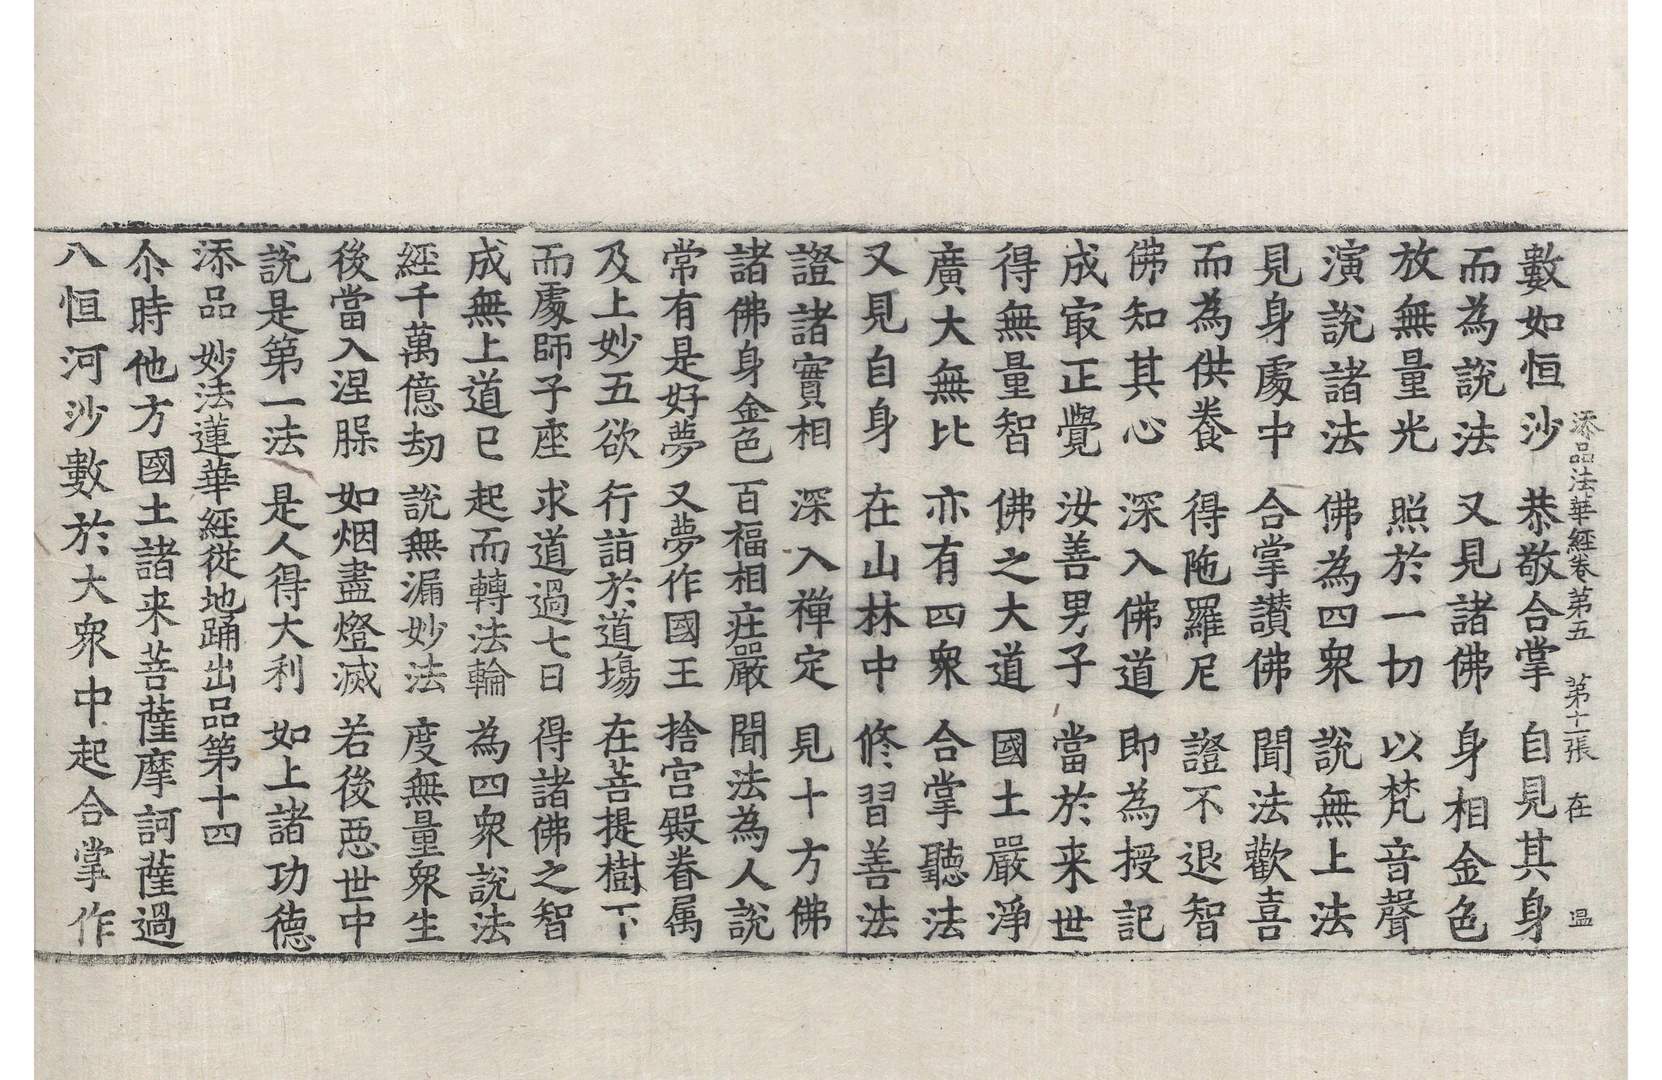 添品法華經卷第五 第十一張 在 温
數如恒沙 恭敬合掌 自見其身
而為說法 又見諸佛 身相金色
放無量光 照於一切 以梵音聲
演說諸法 佛為四衆 說無上法
見身處中 合掌讚佛 聞法歡喜
而為供養 得陁羅尼 證不退智
佛知其心 深入佛道 即為授記
成㝡正覺 汝善男子 當於来世
得無量智 佛之大道 國土嚴淨
廣大無比 亦有四衆 合掌聽法
又見自身 在山林中 修習善法
證諸實相 深入禪定 見十方佛
諸佛身金色 百福相莊嚴 聞法為人說
常有是好夢 又夢作國王 捨宮殿眷属
及上妙五欲 行詣於道場 在菩提樹下
而處師子座 求道過七日 得諸佛之智
成無上道已 起而轉法輪 為四衆說法
經千萬億劫 說無漏妙法 度無量衆生
後當入涅槃 如烟盡燈滅 若後惡世中
說是第一法 是人得大利 如上諸功德
添品 妙法蓮華經從地踊出品第十四
尒時他方國土諸来菩薩摩訶薩過
八恒河沙數於大衆中起合掌作